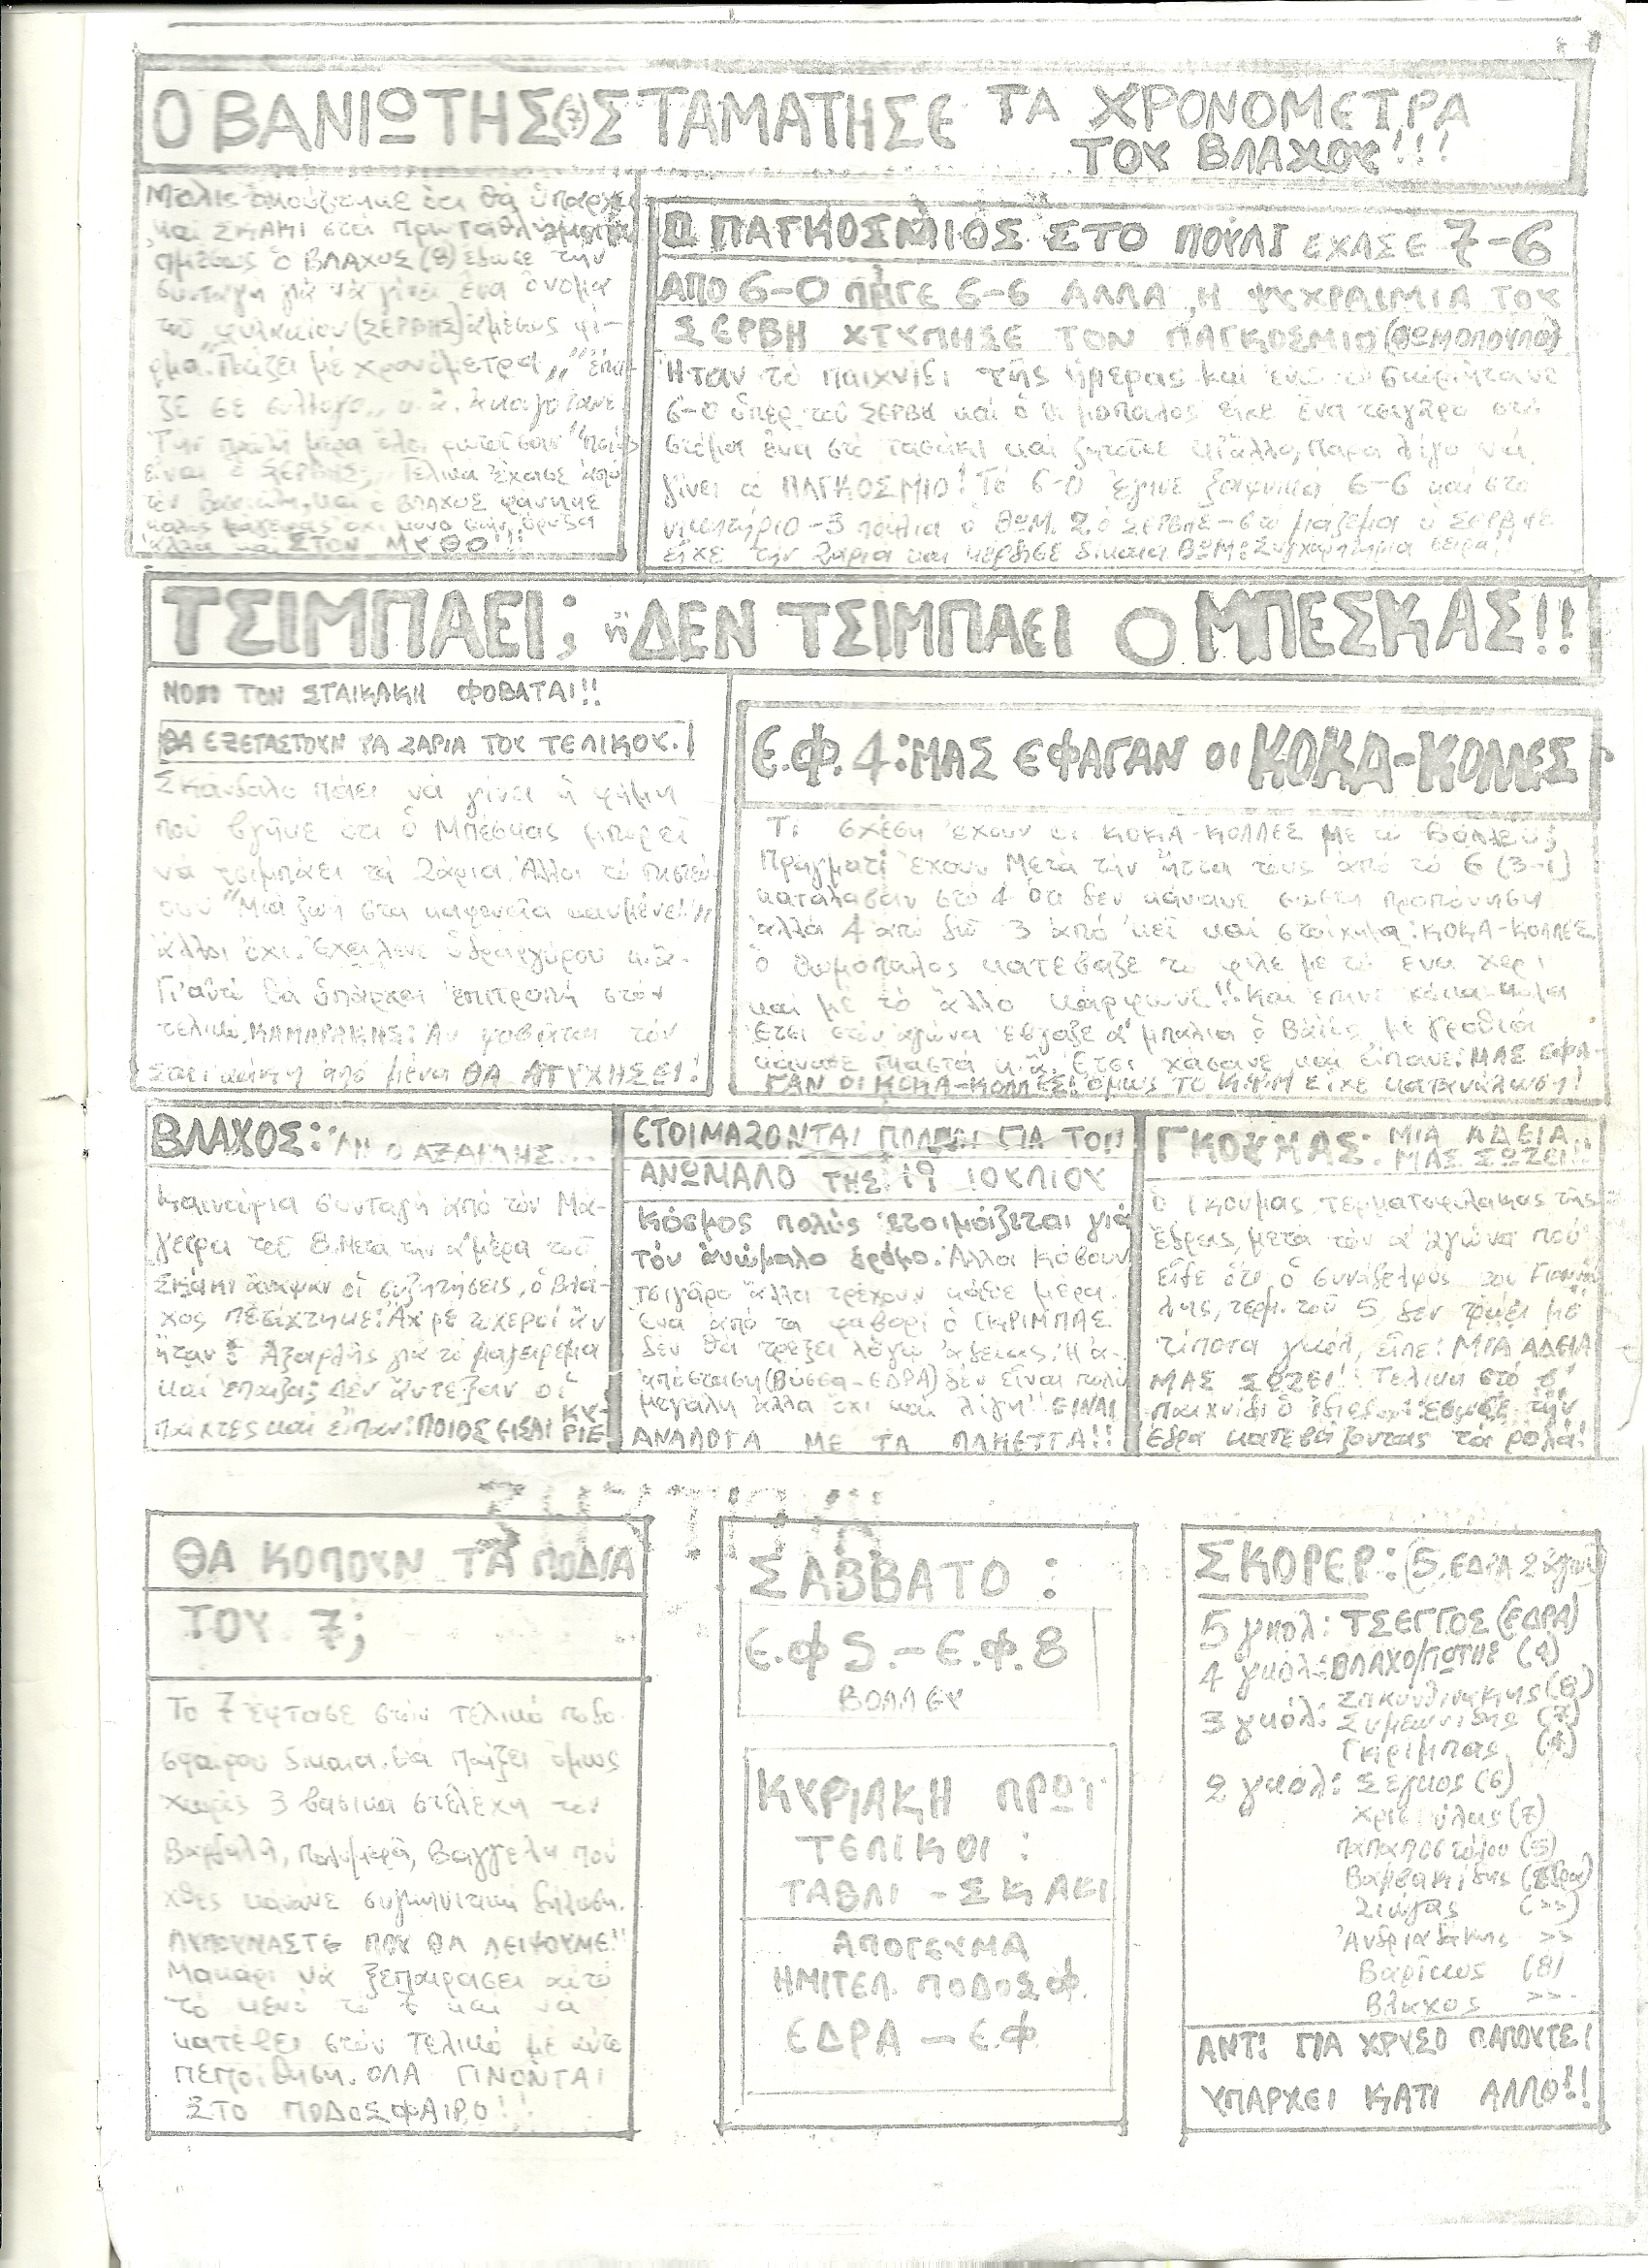 Ο ΒΑΝΙΩΤΗΣ(7)ΣΤΑΜΑΤΗΣΕ ΤΑ ΧΡΟΝΟΜΕΤΡΑ
ΤΟΥ ΒΛΑΧΟΥ!!!
Μόλις ἀκούστηκε ὅτι θά ὑπάρχει
και ΣΚΑΚΙ στά πρωταθλήματα
ἀμέσως ὁ ΒΛΑΧΟΣ (8) ἔδωσε την
συνταγή γιά νά γίνει ἕνα ὄνομα
τοῦ φυλακίου (ΣΕΡΒΗΣ) ἀμέσως φί-
ρμα. "Παίζει μέ χρονόμετρα,, "ἔπαι-
ζε σέ σύλλογο,, κ.ἄ.
Τήν πρώτη μέρα ὅλοι ρωτοῦσαν "ποιός
εἶναι ὁ ΣΕΡΒΗΣ;,, Τελικά ἔχασε ἀπό
τόν Βανιώτη, και ὁ ΒΛΑΧΟΣ φάνηκε
καλός μάγειρας ὄχι μόνο στήν ὄρυζα
ἀλλά και ΣΤΟΝ ΜΥΘΟ!!!
Ο ΠΑΓΚΟΣΜΙΟΣ ΣΤΟ ΠΟΥΛΙ ΕΧΑΣΕ 7-6
ΑΠΟ 6-0 ΠΗΓΕ 6-6 ΑΛΛΑ Η ΨΥΧΡΑΙΜΙΑ ΤΟΥ
ΣΕΡΒΗ ΧΤΥΠΗΣΕ ΤΟΝ ΠΑΓΚΟΣΜΙΟ (ΘΩΜΟΠΟΥΛΟ)
Ηταν τό παιχνίδι τῆς ἡμέρας και ἐνῶ τό σκόρ ἤτανε
6-0 ὑπέρ τοῦ ΣΕΡΒΗ και ὁ Θωμόπουλος εἶχε ἕνα τσιγάρο στό
στόμα ἕνα στό τασάκι και ζητοῦσε κι ἄλλο, παρά λίγο νά
γίνει τό ΠΑΓΚΟΣΜΙΟ! Τό 6-0 ἔγινε ξαφνικά 6-6 και στο
νικητήριο -3 πούλια ὁ ΘΩΜ. 2 ὁ ΣΕΡΒΗΣ- στό μάζεμα ὁ ΣΕΡΒΗΣ
εἶχε τήν ζαριά και κέρδισε δίκαια. ΘΩΜ: Συγχαρητήρια σειρά!!
ΤΣΙΜΠΑΕΙ; ἤ ΔΕΝ ΤΣΙΜΠΑΕΙ Ο ΜΠΕΣΚΑΣ!!
ΜΟΝΟ ΤΟΝ ΣΤΑΙΚΑΚΗ ΦΟΒΑΤΑΙ!!
ΘΑ ΕΞΕΤΑΣΤΟΥΝ ΤΑ ΖΑΡΙΑ ΤΟΥ ΤΕΛΙΚΟΥ.!
Σκάνδαλο πάει νά γίνει ἡ φήμη
πού βγῆκε ὅτι ὁ Μπέσκας μπορεῖ
νά τσιμπάει τά ζάρια. Ἄλλοι τό πιστεύ-
ουν "Μιά ζωή στα καφενεῖα καϋμένε!!,,
ἄλλοι ὄχι. Ἔχει λένε ὑδραργύρου κ.ἄ.
Γι' αὐτό θά ὑπάρχει ἐπιτροπή στόν
τελικό. ΚΑΜΑΡΑΚΗΣ: Ἄν φοβᾶται τόν
Σταϊκάκη ἀπό μένα ΘΑ ΑΤΥΧΗΣΕΙ!
Ε.Φ.4: ΜΑΣ ΕΦΑΓΑΝ ΟΙ ΚΟΚΑ-ΚΟΛΛΕΣ
Τι σχέση ἔχουν οἱ ΚΟΚΑ-ΚΟΛΛΕΣ με το Βόλλεϋ;
Πράγματι ἔχουν. Μετά τήν ἥττα τους ἀπό τό 6 (3-1)
κατάλαβαν στό 4 ὅτι δεν κάνανε σωστή προπόνηση
ἀλλά 4 ἀπό δῶ 3 ἀπό κεῖ και στοίχημα: ΚΟΚΑ-ΚΟΛΛΕΣ
ὁ Θωμόπουλος κατέβαζε τό φιλέ με τό ἕνα χέρι
και μέ τό ἄλλο κάρφωνε!! Και ἔπινε κόκα-κόλα
Ετσι στόν ἀγώνα ἔβγαζε ἀ' μπάλια ὁ Βάιος, μέ γροθιά
κάνανε πιαστά κ.ἄ. Ἔτσι χάσανε και εἴπανε: ΜΑΣ ΕΦΑ-
ΓΑΝ ΟΙ ΚΟΚΑ-ΚΟΛΛΕΣ! ὅμως ΤΟ Κ.Ψ.Μ ΕΙΧΕ κατανάλωση!
ΒΛΑΧΟΣ: "ΑΝ Ο ΑΞΑΡΛΗΣ...
Καινούρια συνταγή ἀπό τόν Μά-
γειρα τοῦ 8. Μετα την α' μέρα τοῦ
ΣΚΑΚΙ ἄναψαν οἱ συζητήσεις, ὁ Βλά-
χος πετάχτηκε: Ἄχ ρέ τυχεροί ἄν
ἤταν ὁ Ἀξαρλῆς γιά τό μαγείρεμα
και ἔπαιζα; Δέν ἄντεξαν οἱ
παῖκτες και εἶπαν: ΠΟΙΟΣ ΕΙΣΑΙ ΚΥ-
ΡΙΕ
ΕΤΟΙΜΑΖΟΝΤΑΙ ΠΟΛΛΟΙ ΓΙΑ ΤΟΝ
ΑΝΩΜΑΛΟ ΤΗΣ 19 ΙΟΥΛΙΟΥ
Κόσμος πολύς ἑτοιμάζεται γιά
τόν ἀνώμαλο δρόμο. Ἄλλοι κόβουν
τσιγάρο ἄλλοι τρέχουν κάθε μέρα.
Ενα ἀπό τα φαβορί ὁ ΓΚΡΙΜΠΑΣ
δέν θά τρέξει λόγω ἀδείας. Ἡ ἀ-
πόσταση (Βύσσα-ΕΔΡΑ) δέν εἶναι πολύ
μεγάλη ἀλλά ὄχι και λίγη!! ΕΙΝΑΙ
ΑΝΑΛΟΓΑ ΜΕ ΤΑ ΠΑΚΕΤΤΑ!!
ΓΚΟΥΜΑΣ: ΜΙΑ ΑΔΕΙΑ..
ΜΑΣ ΣΩΖΕΙ!!
Ὁ Γκούμας τερματοφύλακας τῆς
ἕδρας, μετά τόν α' ἀγώνα πού
εἶδε ὅτι ὁ συνάδελφός του
τερμ. τοῦ 5, δεν τρώει με
τίποτα γκόλ, εἶπε: ΜΙΑ ΑΔΕΙΑ
ΜΑΣ ΣΩΖΕΙ!! Τελικη στό β'
παιχνίδι ὁ ἴδιος ἔσωσε τήν
ἕδρα κατεβάζοντας τά ρολά!
ΘΑ ΚΟΠΟΥΝ ΤΑ ΠΟΔΙΑ
ΤΟΥ 7;
Το 7 ἔφτασε στόν τελικό ποδο-
σφαίρου δίκαια. Θά παίζει ὅμως
χωρίς 3 βασικά στελέχη τον
Βαμβαλή, Πολυμερᾶ, Βαγγέλη πού
χθές κάνανε συγκινητική δήλωση.
ΛΥΠΟΥΜΑΣΤΕ ΠΟΥ ΘΑ ΛΕΙΨΟΥΜΕ!!
Μακάρι νά ξεπεράσει αὐτό
τό κενό τό 7 και νά
κατέβει στόν τελικό με αὐτο
πεποίθηση. ΟΛΑ ΓΙΝΟΝΤΑΙ
ΣΤΟ ΠΟΔΟΣΦΑΙΡΟ!!
ΣΑΒΒΑΤΟ:
Ε.Φ 5.-Ε.Φ.8
ΒΟΛΛΕΥ
ΚΥΡΙΑΚΗ ΠΡΩΙ
ΤΕΛΙΚΟΙ:
ΤΑΒΛΙ-ΣΚΑΚΙ
ΑΠΟΓΕΥΜΑ
ΗΜΙΤΕΛ. ΠΟΔΟΣΦ.
ΕΔΡΑ-Ε.Φ
ΣΚΟΡΕΡ: (5, ΕΔΡΑ 2 ἀγων)
5 γκολ: ΤΣΕΓΓΟΣ (ΕΔΡΑ)
4 γκόλ: ΒΛΑΧΟΓΙΩΤΗΣ (4)
Ζακυνθινάκης (8)
3 γκόλ: Συμεωνίδης (7)
Γκρίμπας (4)
2 γκόλ: Σέγκος (6)
Χρισ (7)
Παπαποστόλου (5)
Βαμβακίδης (Εδρα)
Ζιώγας (>>)
Ἀνδριαδάκης >>
Βαρίκος (8)
Βλάχος >>
ΑΝΤΙ ΓΙΑ ΧΡΥΣΟ ΠΑΠΟΥΤΣΙ
ΥΠΑΡΧΕΙ ΚΑΤΙ ΑΛΛΟ!!